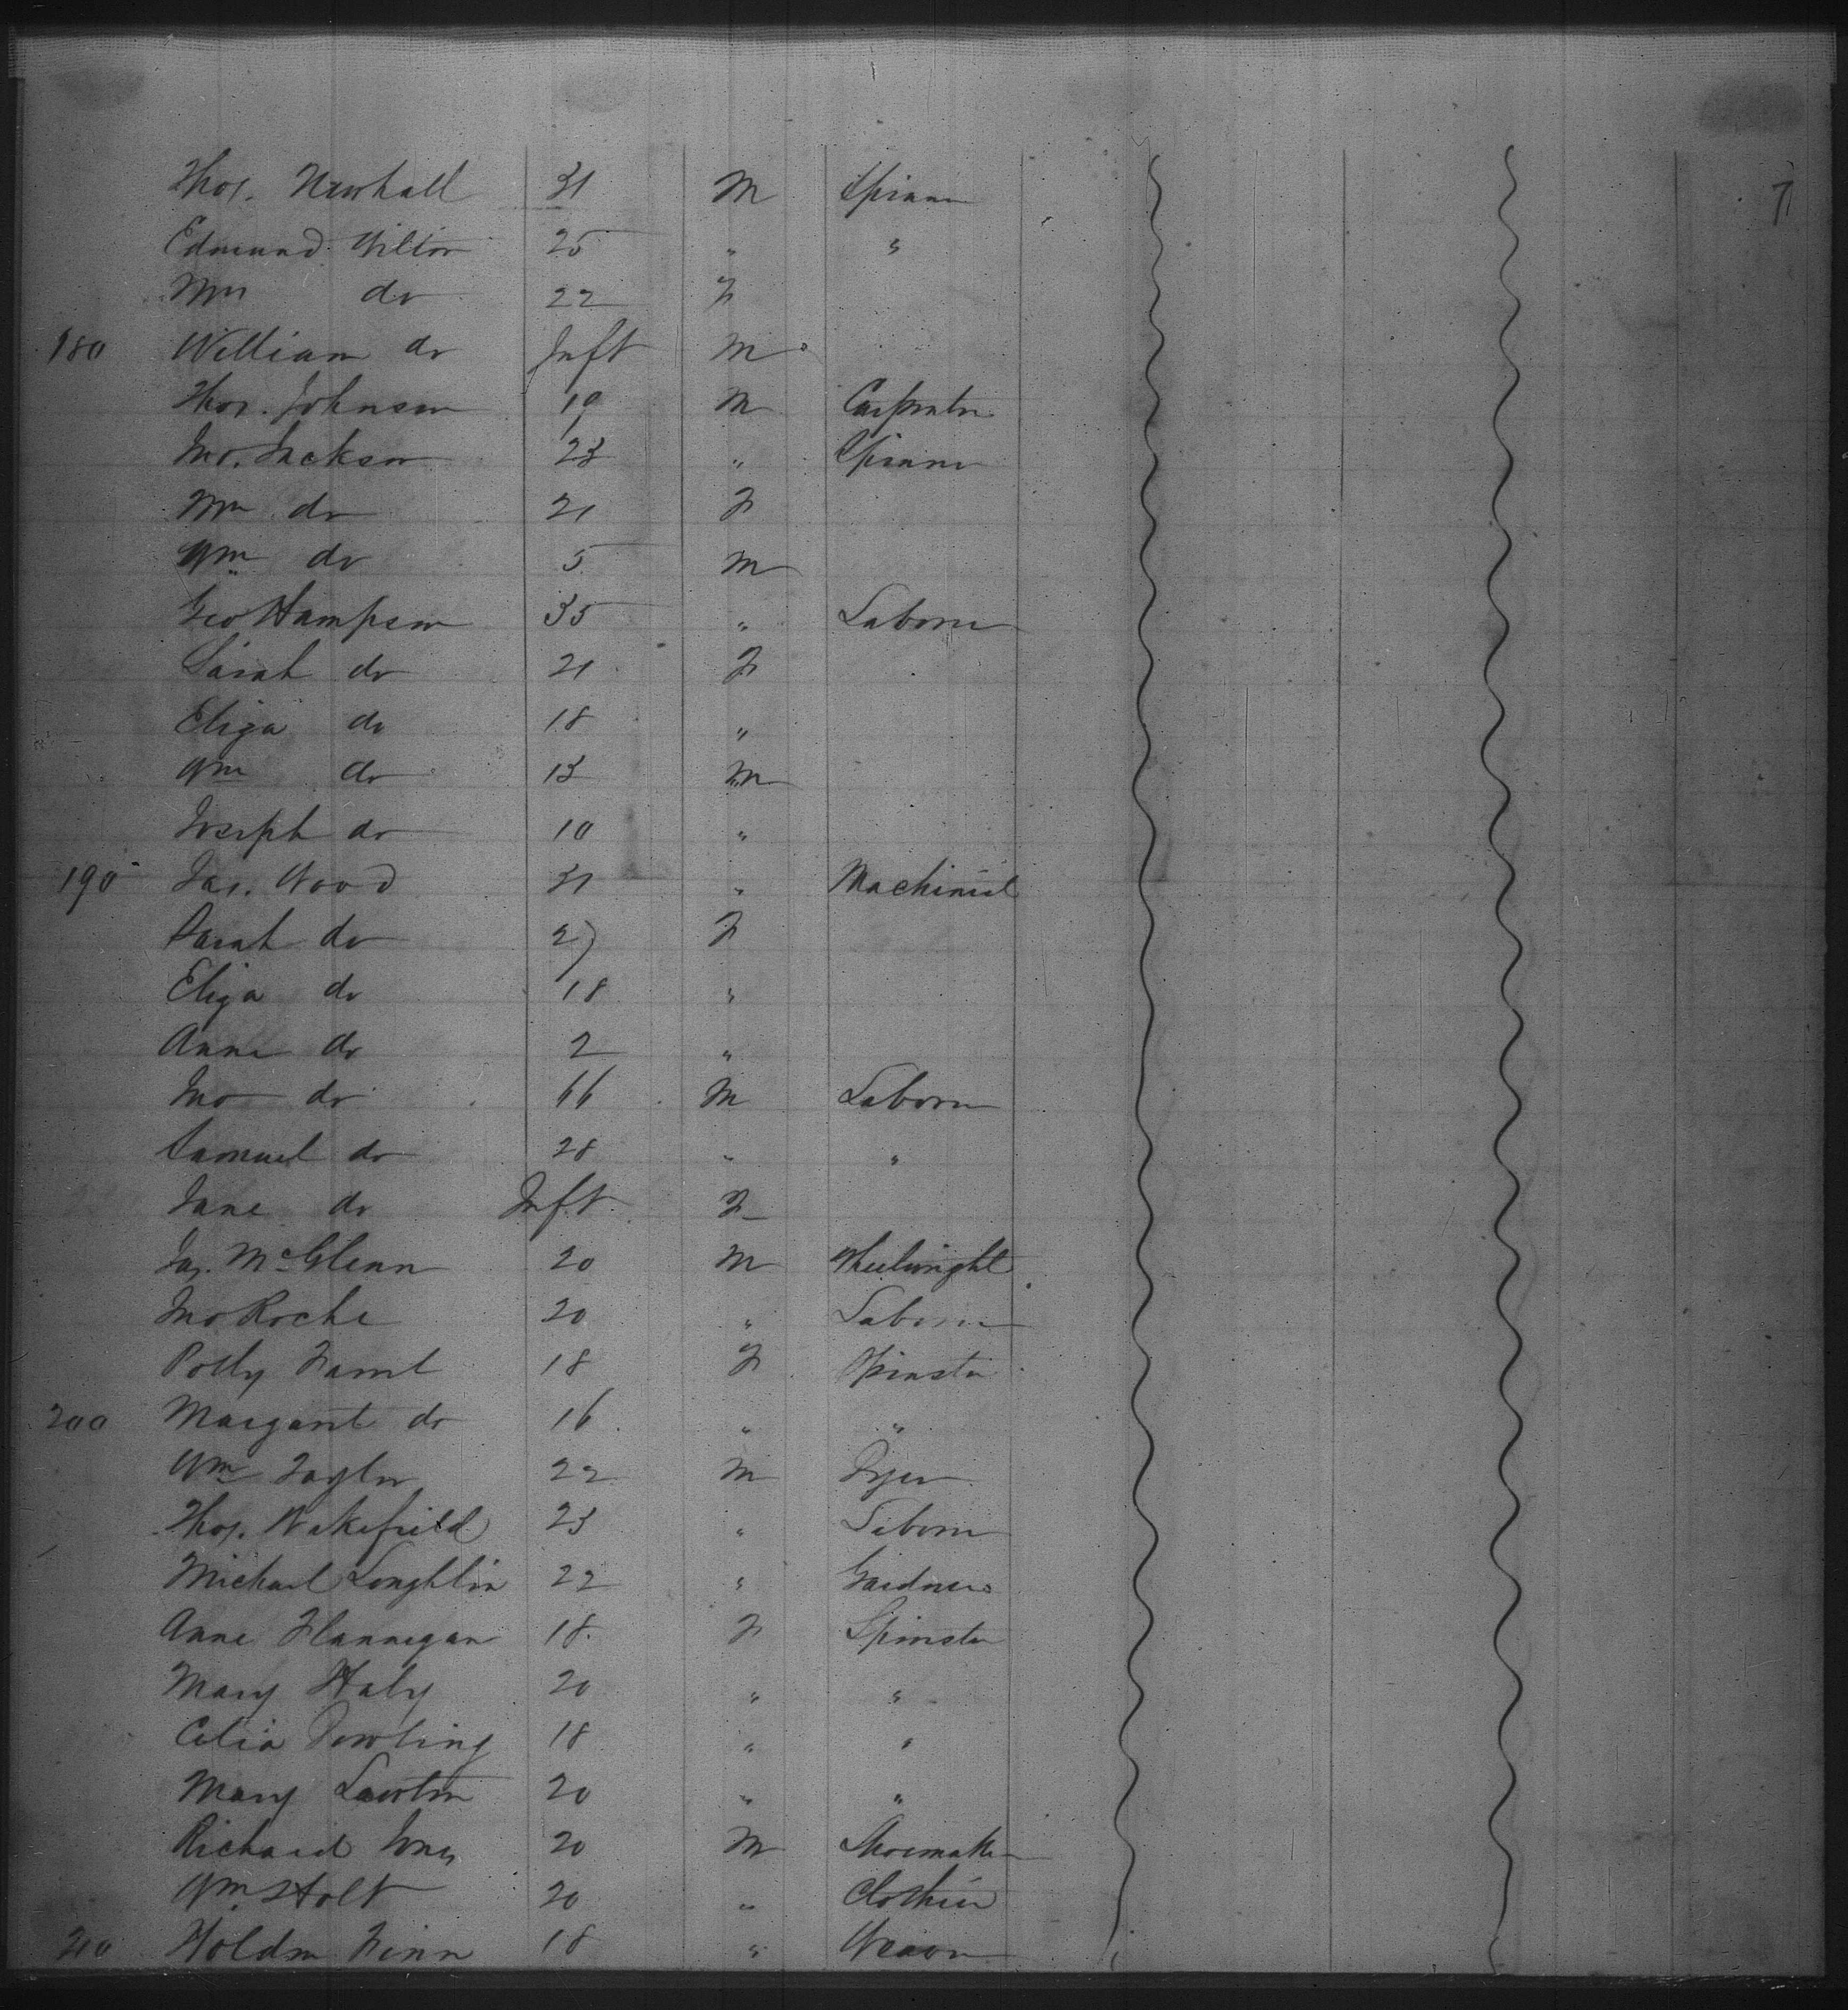 7
Thos. Newhall 31 M Spinner
Edmund Wilton 25 " "
Mrs do 22 F
180 William do Inft M
Thos. Johnson 19 M Carpenter
Jno. Jackson 23 " Spinner
Mrs do 21 F
Wm do 5 M
Geo Hampson 35 " Laborer
Sarah do 21 F
Eliza do 18 "
Wm do 13 M
Joseph do 10 "
190 Jas. Wood 31 " Machinist
Sarah do 27 F
Eliza do 18 "
Anne do 2 "
Jno do 66 M Laborer
Samuel do 28 " "
Jane do Inft F
Jas. McGlenn 20 M Wheelwright
Jno Roche 20 " Laborer
Polly 18 F Spinster
200 Margaret do 16 " "
Wm Taylor 22 M Dyer
Thos. Wakefield 23 " Laborer
Michael Loughlin 22 " Gardner
Anne Flannegan 18 F Spinster
Mary Haly 20 " "
Celia Dowling 18 " "
Mary Lawton 20 " "
Richard Jones 20 M Shoemaker
Wm Holt 20 " Clothier
210 Holden Finn 18 " Weaver